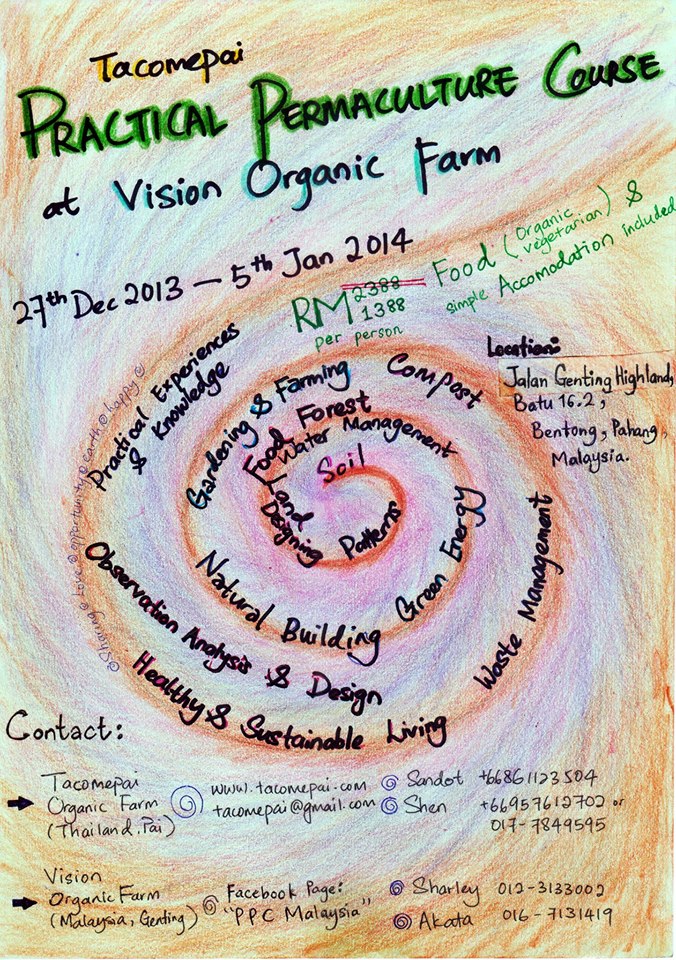 Tacomepai
PRACTICAL PERMACULTURE COURSE
at Vision Organic Farm
27th Dec 2013 – 5th Jan 2014
RM 2388
1388
per person
Food (Organic vegetarian) &
simple Accomodation included
Location:
Jalan Genting Highland,
Batu 16.2,
Bentong, Pahang,
Malaysia.
Soil
Water Management
Food Forest
Land
Designing Patterns
Gardening & Farming
Compost
Green Energy
Natural Building
Practical Experiences
& Knowledge
Observation Analysis & Design
Healthy & Sustainable Living
Waste Management
@Sharing@Love@opportunity@earth@happy@
Contact:
Tacomepai
Organic Farm
(Thailand.Pai)
www.tacomepai.com
tacomepai@gmail.com
Sandot +66861123504
Shen +66957612702 or
017-7849595
Vision
Organic Farm
(Malaysia, Genting)
Facebook Page:
"PPC Malaysia"
Sharley 012-3133002
Akata 016-7131419